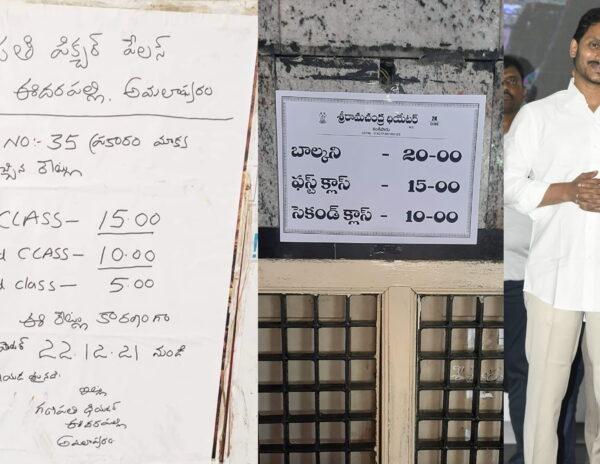 పతి పిక్చర్ పేలస్
ఈదరపల్లి, అమలాపురం
NO:- 35 ప్రకారం మాకు
CLASS- 15.00
CLASS- 10.00
class- 5.00
ఈ రేట్లు కారణంగా
22.12.21 నుండి
గణపతి థియేటర్
ఈదరపల్లి
అమలాపురం
శ్రీరామచంద్ర థియేటర్
బాల్కని - 20-00
ఫస్ట్ క్లాస్ - 15-00
సెకండ్ క్లాస్ - 10-00